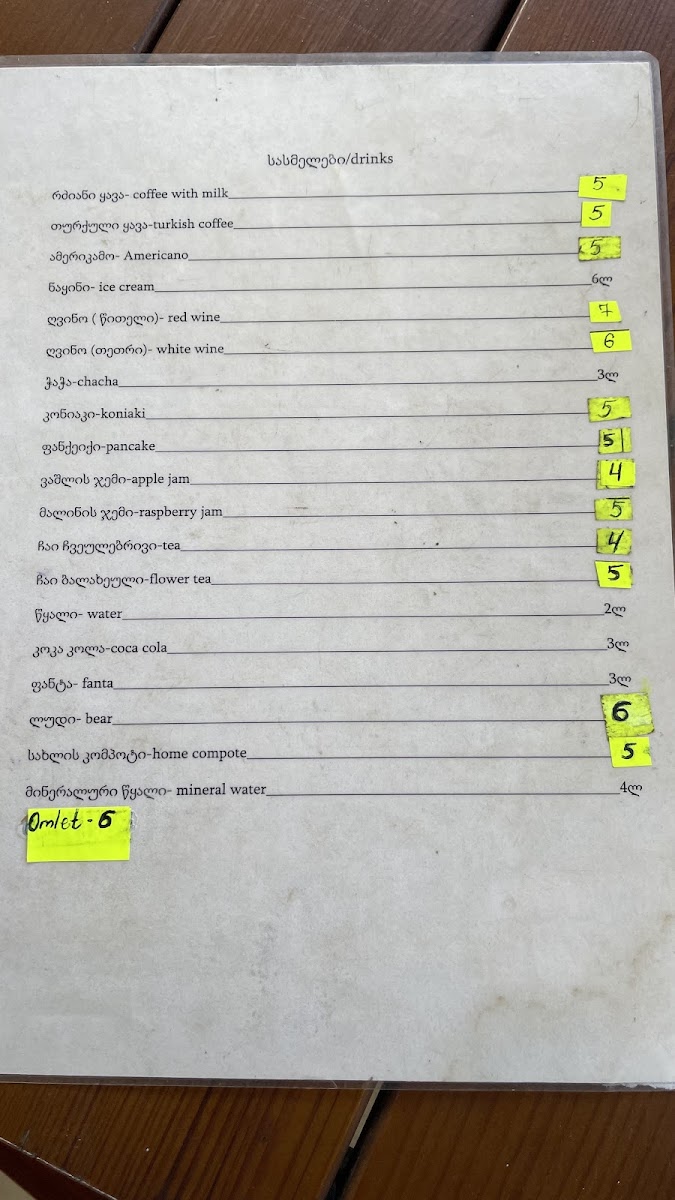 სასმელები/drinks
რძიანი ყავა- coffee with milk 5
თურქული ყავა-turkish coffee 5
ამერიკამო- Americano 5
ნაყინი- ice cream 6ლ
ღვინო ( წითელი)- red wine 7
ღვინო (თეთრი)- white wine 6
ჭაჭა-chacha 3ლ
კონიაკი-koniaki 5
ფანქეიქი-pancake 5
ვაშლის ჯემი-apple jam 4
მალინის ჯემი-raspberry jam 5
ჩაი ჩვეულებრივი-tea 4
ჩაი ბალახეული-flower tea 5
წყალი- water 2ლ
კოკა კოლა-coca cola 3ლ
ფანტა- fanta 3ლ
ლუდი- bear 6
სახლის კომპოტი-home compote 5
მინერალური წყალი- mineral water 4ლ
Omlet - 6